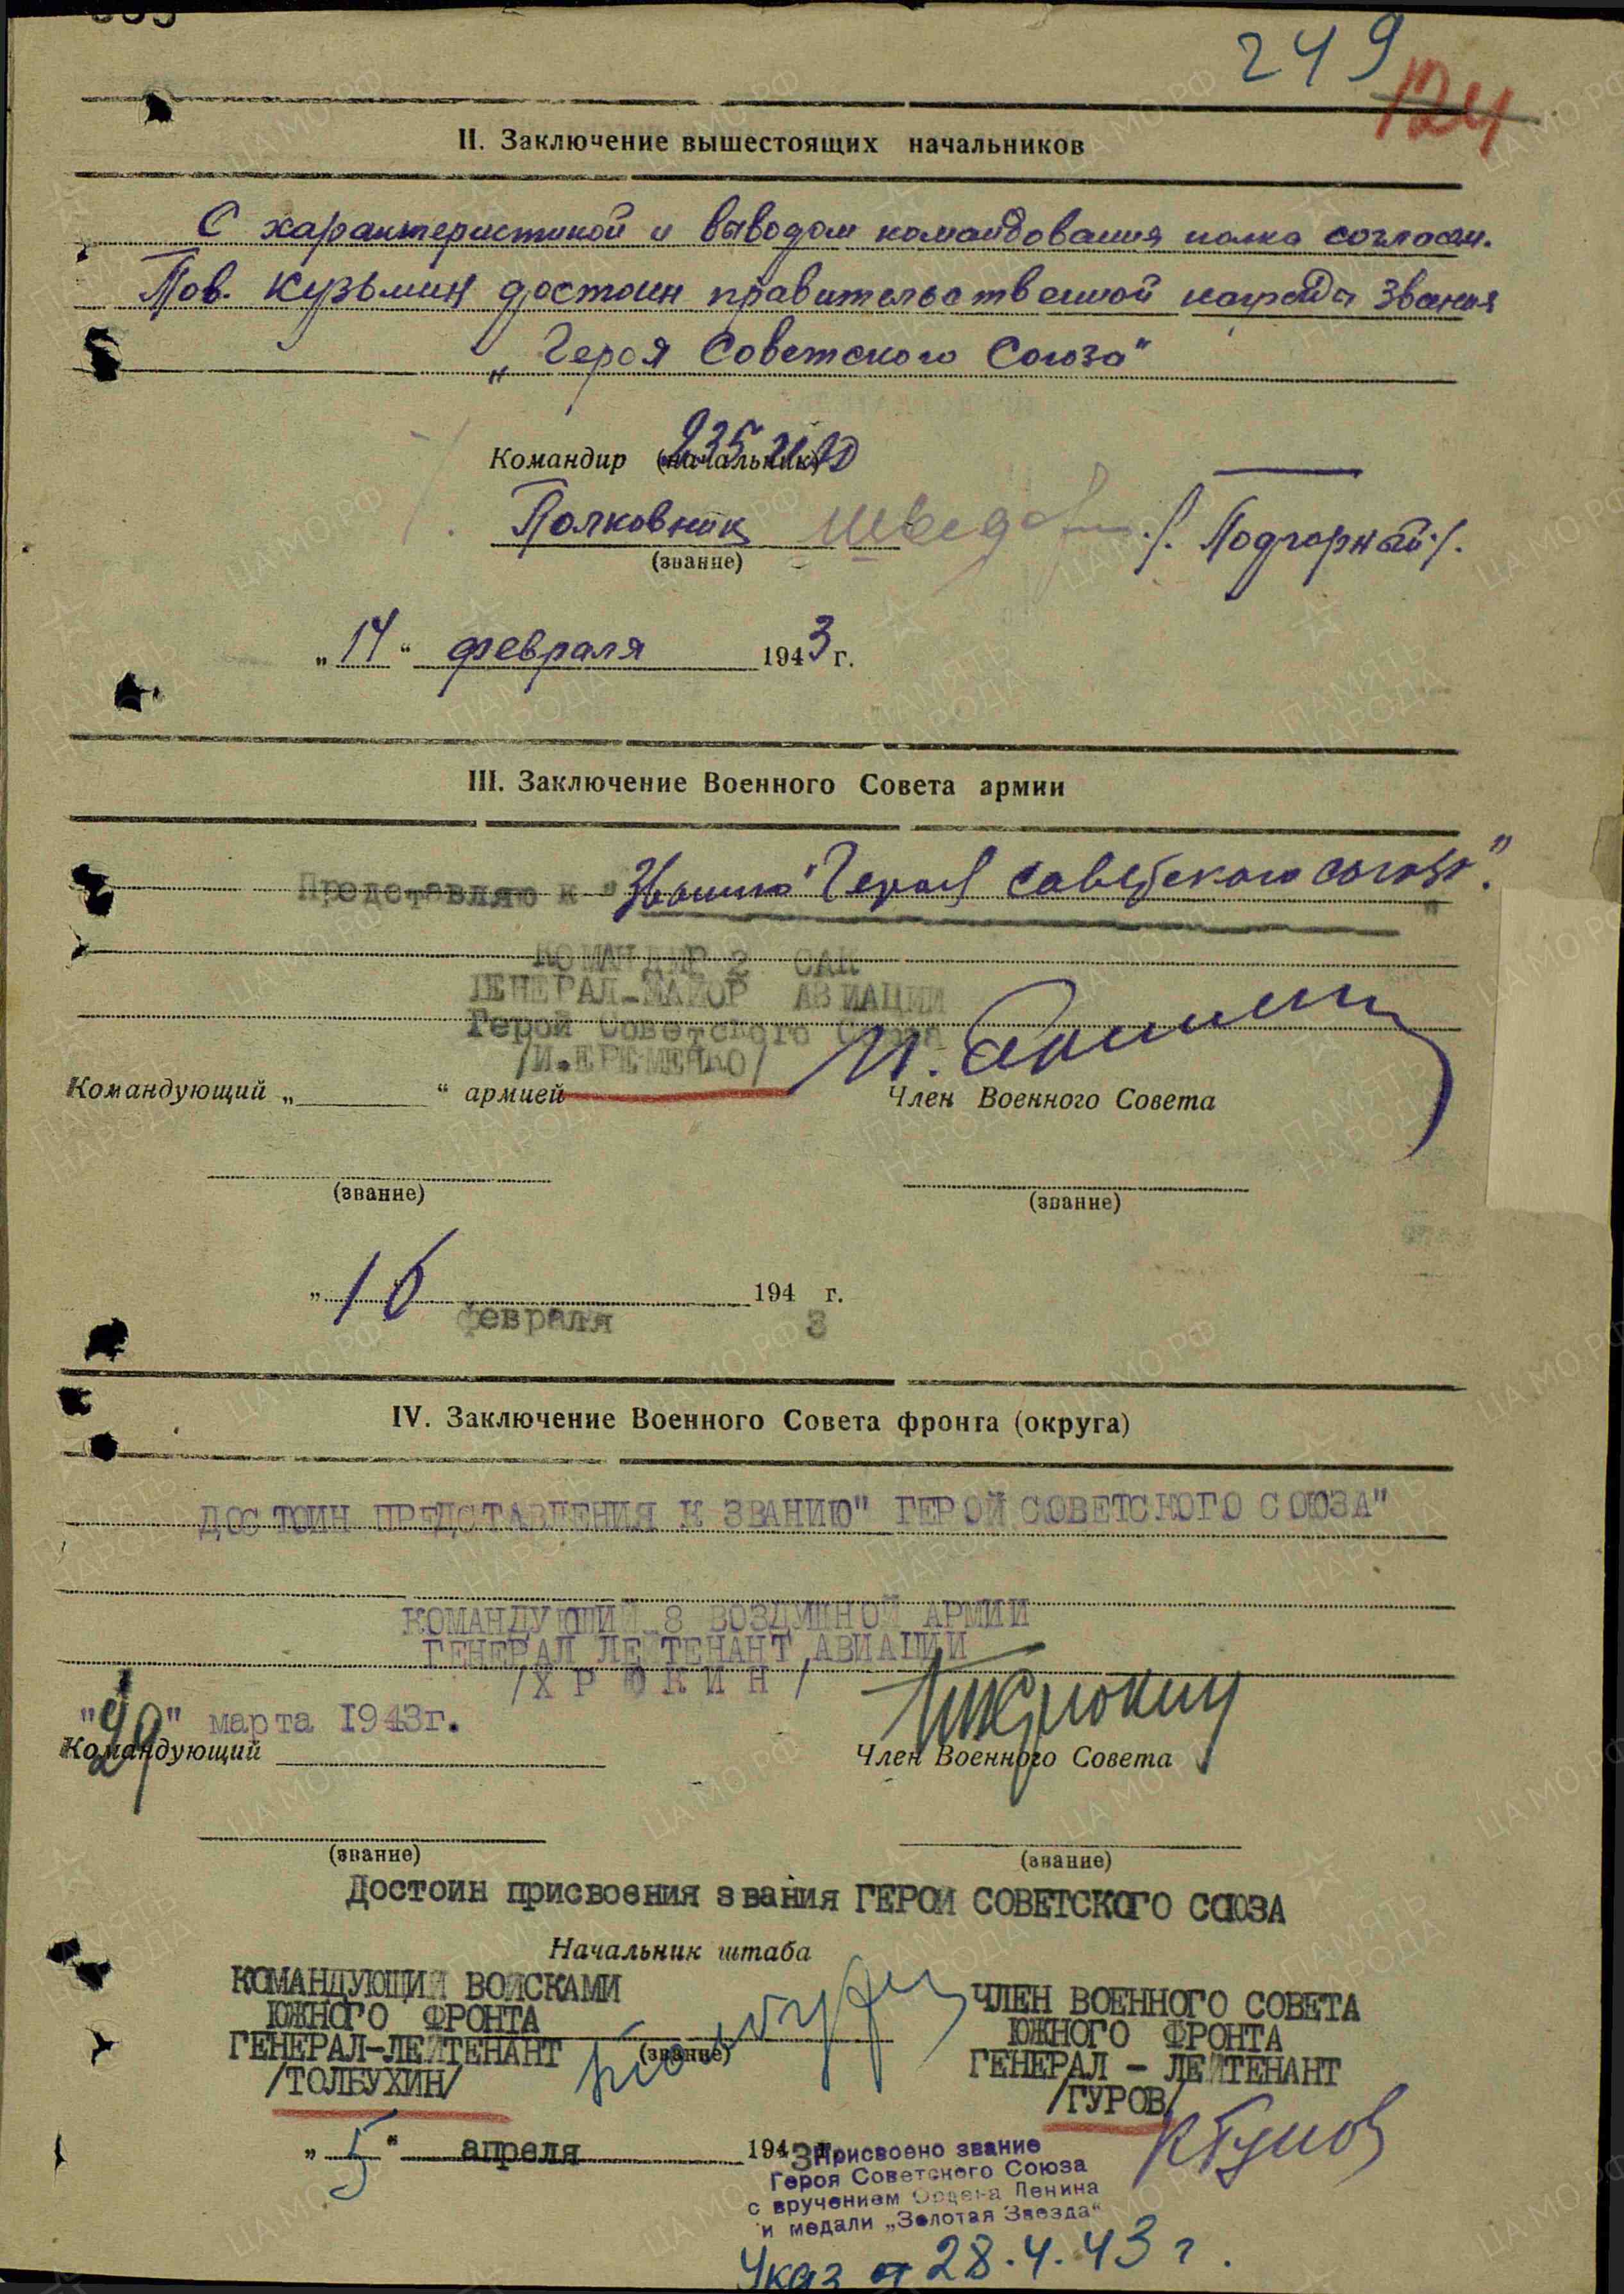 249
124
II. Заключение вышестоящих начальников
С характеристикой и выводом командования полка согласен.
Тов. Кузьмин достоин правительственной награды звания
„Героя Советского Союза"
Командир (начальник) 235 иад
Полковник /. Подгорный ./.
(звание)
„14" февраля 1943 г.
III. Заключение Военного Совета армии
Представляю к "Званию "Героя Советского союза".
КОМАНДИР 2 САК
ГЕНЕРАЛ-МАЙОР АВИАЦИИ
Герой Советского Союза
/И.ЕРЕМЕНКО/
Командующий „ " армией Член Военного Совета
(звание) (звание)
„16 194 г.
февраля 3
IV. Заключение Военного Совета фронта (округа)
ДОСТОИН ПРЕДСТАВЛЕНИЯ К ЗВАНИЮ" ГЕРОЙ СОВЕТСКОГО СОЮЗА"
КОМАНДУЮЩИЙ 8 ВОЗДУШНОЙ АРМИИ
ГЕНЕРАЛ ЛЕЙТЕНАНТ АВИАЦИИ
/Х Р Ю К И Н /
"29" марта 1943г.
Командующий Член Военного Совета
(звание) (звание)
Достоин присвоения звания ГЕРОЯ СОВЕТСКОГО СОЮЗА
Начальник штаба
КОМАНДУЮЩИЙ ВОЙСКАМИ
ЮЖНОГО ФРОНТА
ГЕНЕРАЛ-ЛЕЙТЕНАНТ
/ТОЛБУХИН/
(звание)
ЧЛЕН ВОЕННОГО СОВЕТА
ЮЖНОГО ФРОНТА
ГЕНЕРАЛ - ЛЕЙТЕНАНТ
/ГУРОВ/
„5" апреля 1943
Присвоено звание
Героя Советского Союза
с вручением Ордена Ленина
и медали „Золотая Звезда"
Указ от 28.4.43 г.